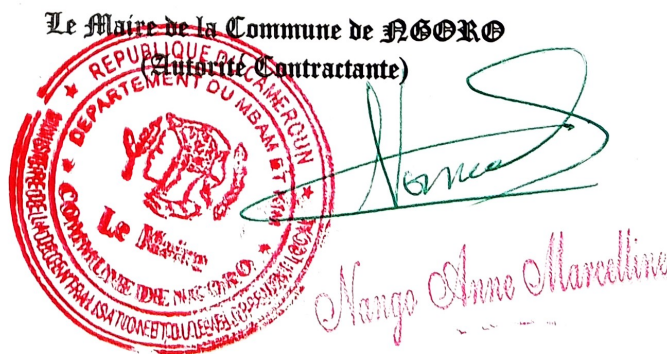 Le Maire de la Commune de NGORO
(Autorité Contractante)
REPUBLIQUE DU CAMEROUN
DEPARTEMENT DU MBAM ET KIM
COMMUNE DE NGORO
Le Maire
Nango Anne Marcelline